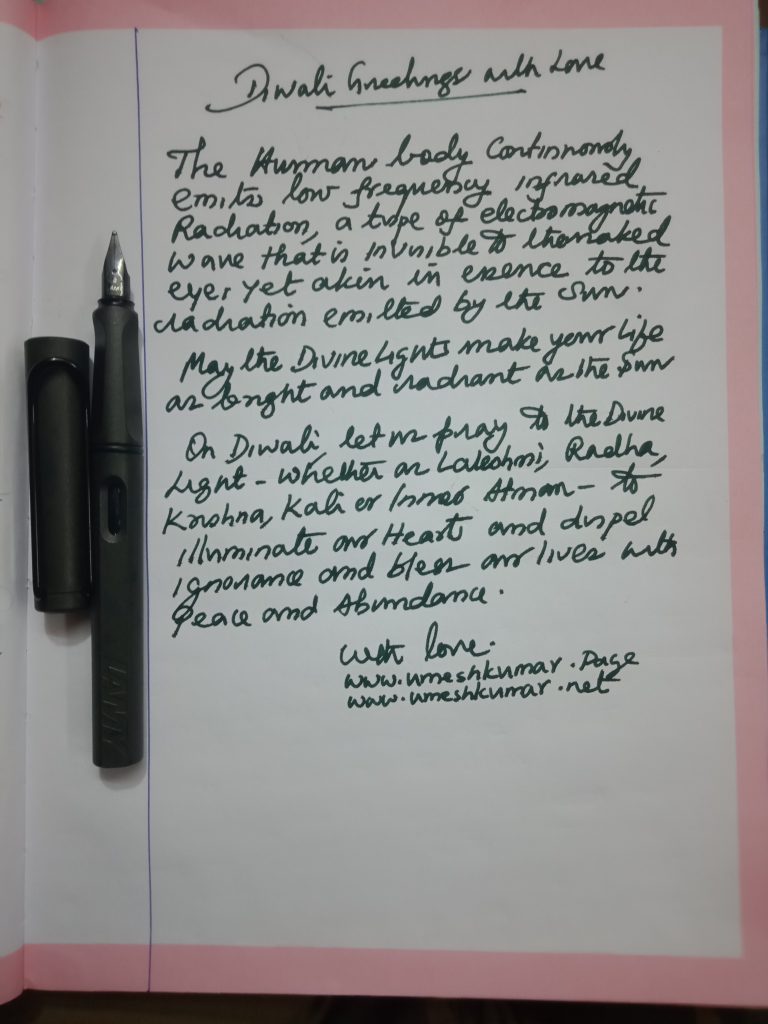 Diwali Greetings with Love
The Human body Continuously
emits low frequency infrared
Radiation, a type of electromagnetic
wave that is invisible to the naked
eye, yet akin in essence to the
radiation emitted by the Sun.
May the Divine Lights make your life
as bright and radiant as the Sun
On Diwali, let us pray to the Divine
Light - whether as Lakshmi, Radha,
Krishna, Kali or Inner Atman - to
illuminate our Heart and dispel
ignorance and bless our lives with
Peace and Abundance.
with love.
www.umeshkumar.page
www.umeshkumar.net
LAMY